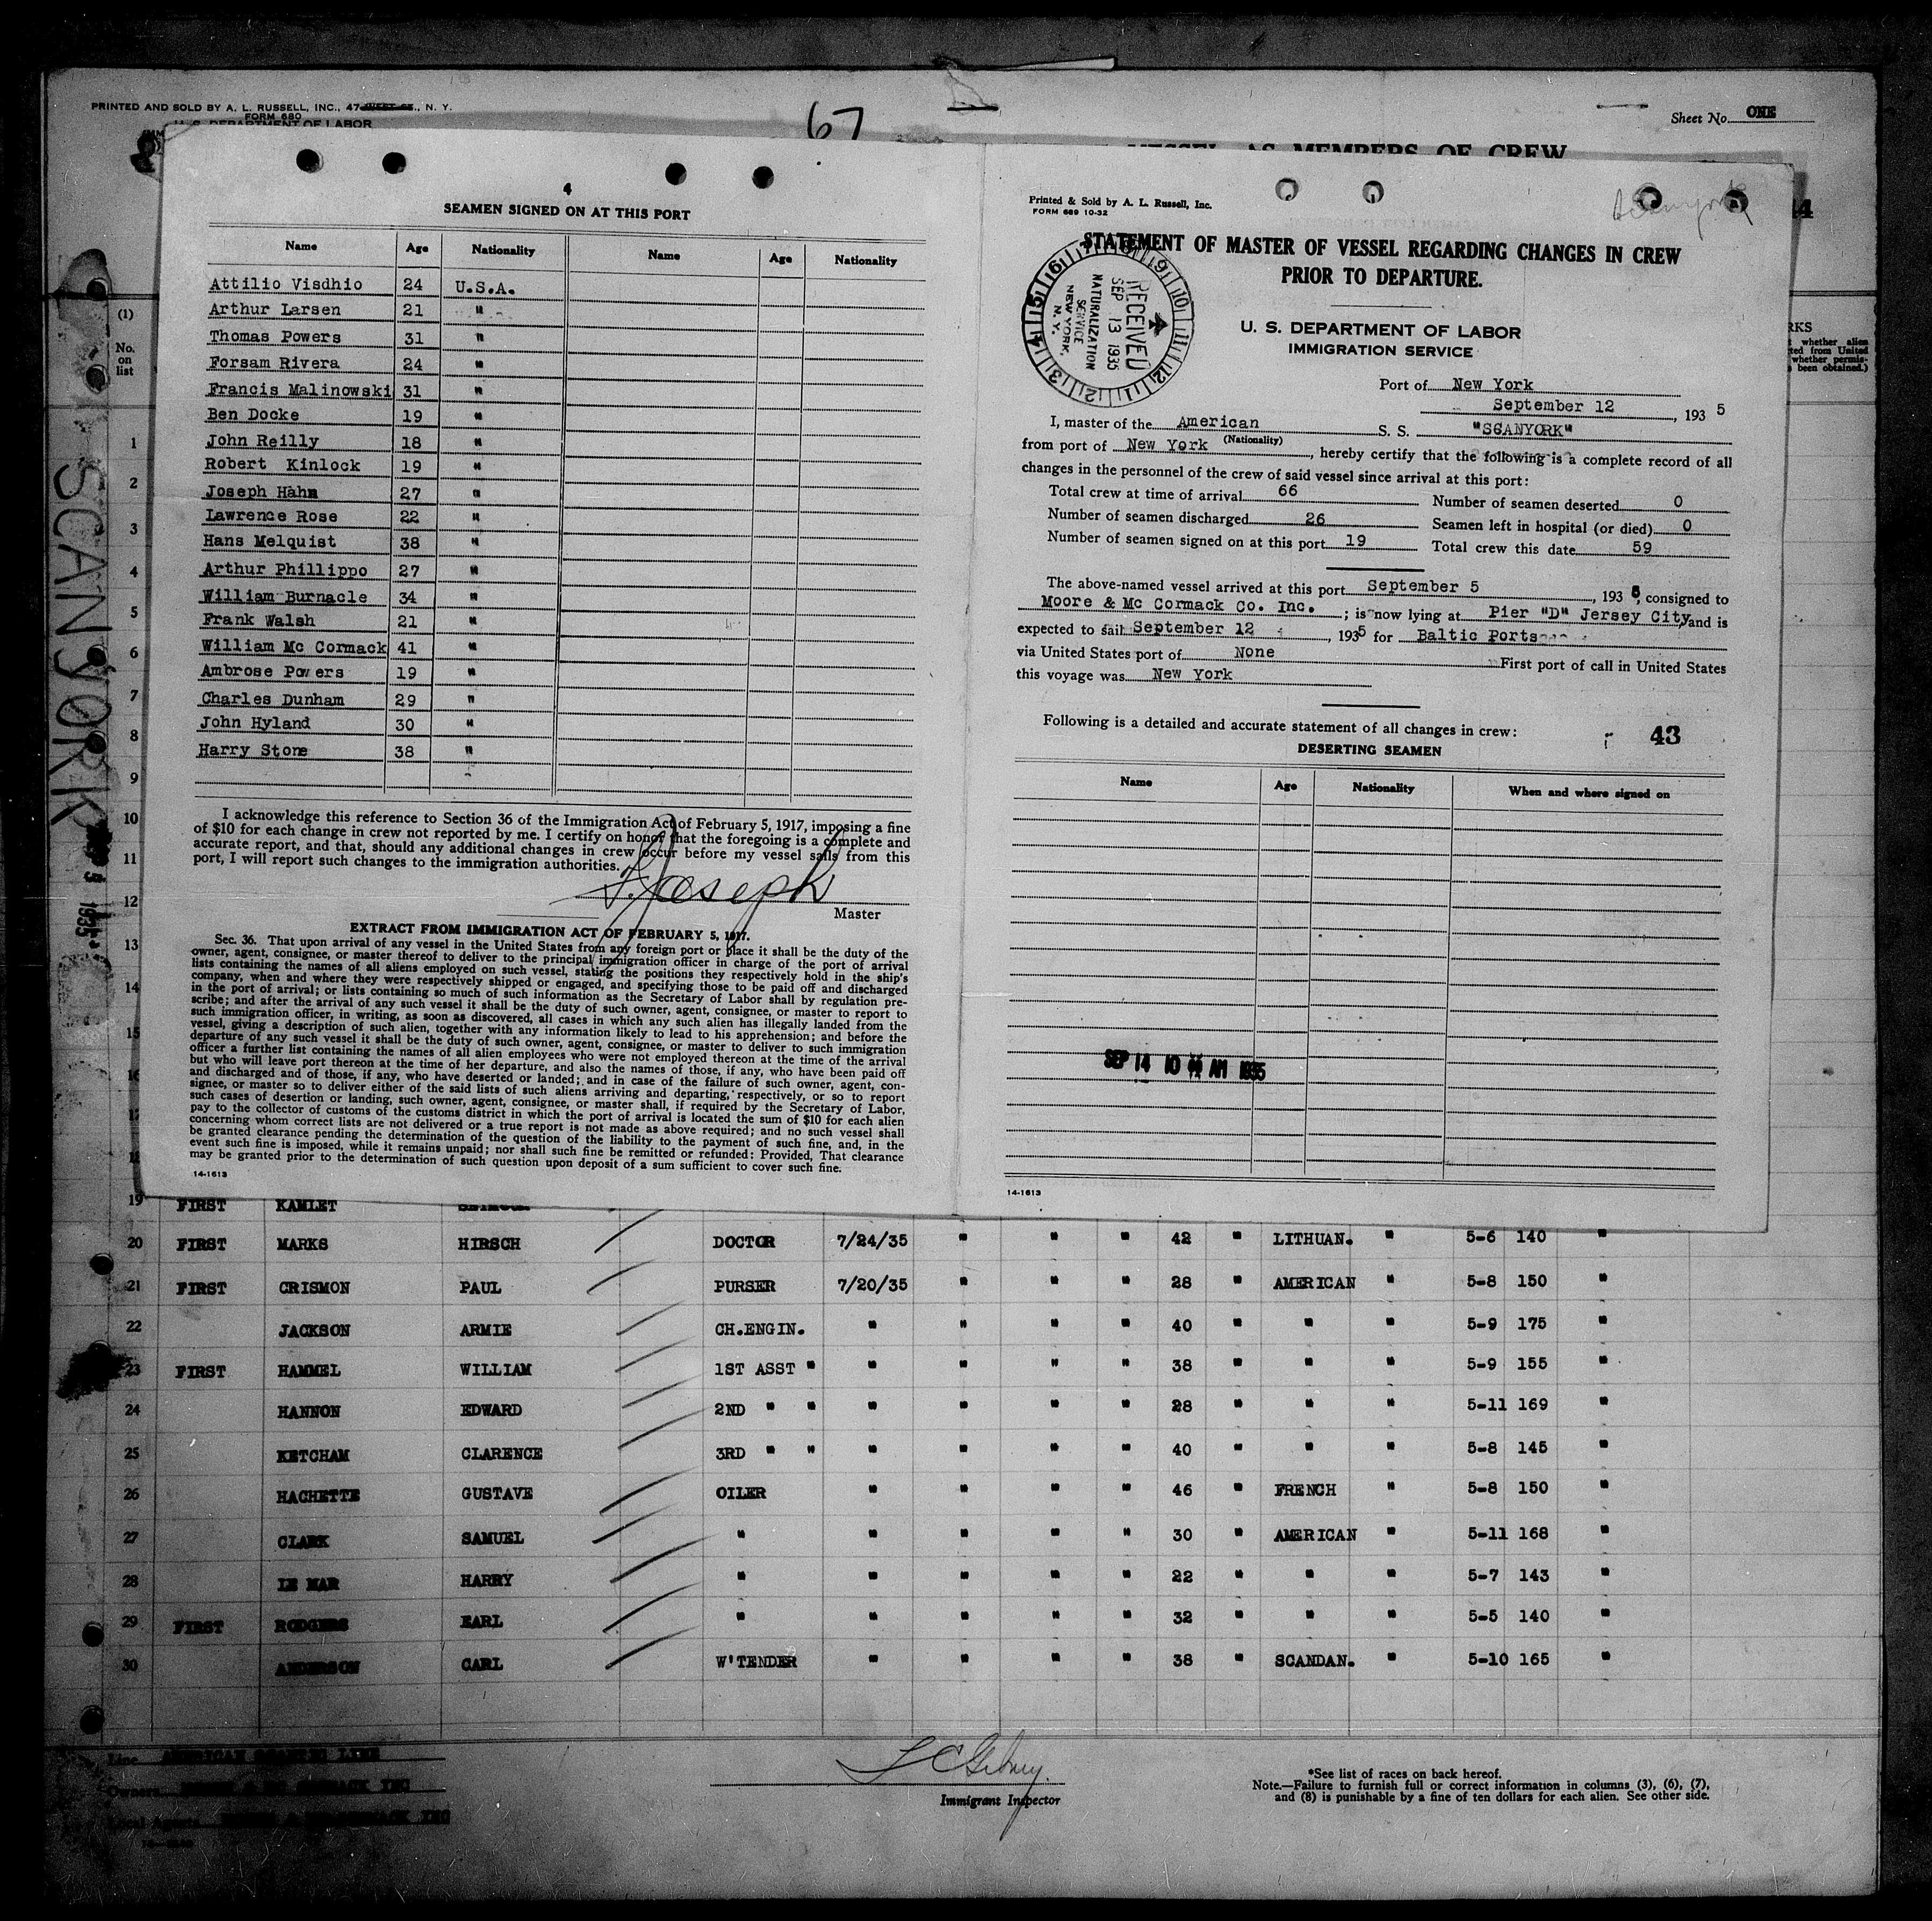 PRINTED AND SOLD BY A. L. RUSSELL, INC., 47 WEST ST., N. Y.
FORM 680
U. S. DEPARTMENT OF LABOR
67
Sheet No. ONE
VESSEL AS MEMBERS OF CREW
(1)
No.
on
list
SCANYORK
4
SEAMEN SIGNED ON AT THIS PORT
Name Age Nationality Name Age Nationality
Attilio Visdhio 24 U.S.A.
Arthur Larsen 21 "
Thomas Powers 31 "
Forsam Rivera 24 "
Francis Malinowski 31 "
Ben Docke 19 "
John Reilly 18 "
Robert Kinlock 19 "
Joseph Hahn 27 "
Lawrence Rose 22 "
Hans Melquist 38 "
Arthur Phillippo 27 "
William Burnacle 34 "
Frank Walsh 21 "
William Mc Cormack 41 "
Ambrose Powers 19 "
Charles Dunham 29 "
John Hyland 30 "
Harry Stone 38 "
I acknowledge this reference to Section 36 of the Immigration Act of February 5, 1917, imposing a fine
of $10 for each change in crew not reported by me. I certify on honor that the foregoing is a complete and
accurate report, and that, should any additional changes in crew occur before my vessel sails from this
port, I will report such changes to the immigration authorities.
Joseph
Master
EXTRACT FROM IMMIGRATION ACT OF FEBRUARY 5, 1917.
Sec. 36. That upon arrival of any vessel in the United States from any foreign port or place it shall be the duty of the
owner, agent, consignee, or master thereof to deliver to the principal immigration officer in charge of the port of arrival
lists containing the names of all aliens employed on such vessel, stating the positions they respectively hold in the ship's
company, when and where they were respectively shipped or engaged, and specifying those to be paid off and discharged
in the port of arrival; or lists containing so much of such information as the Secretary of Labor shall by regulation pre-
scribe; and after the arrival of any such vessel it shall be the duty of such owner, agent, consignee, or master to report to
such immigration officer, in writing, as soon as discovered, all cases in which any such alien has illegally landed from the
vessel, giving a description of such alien, together with any information likely to lead to his apprehension; and before the
departure of any such vessel it shall be the duty of such owner, agent, consignee, or master to deliver to such immigration
officer a further list containing the names of all alien employees who were not employed thereon at the time of the arrival
but who will leave port thereon at the time of her departure, and also the names of those, if any, who have been paid off
and discharged and of those, if any, who have deserted or landed; and in case of the failure of such owner, agent, con-
signee, or master so to deliver either of the said lists of such aliens arriving and departing, respectively, or so to report
such cases of desertion or landing, such owner, agent, consignee, or master shall, if required by the Secretary of Labor,
pay to the collector of customs of the customs district in which the port of arrival is located the sum of $10 for each alien
concerning whom correct lists are not delivered or a true report is not made as above required; and no such vessel shall
be granted clearance pending the determination of the question of the liability to the payment of such fine, and, in the
event such fine is imposed, while it remains unpaid; nor shall such fine be remitted or refunded: Provided, That clearance
may be granted prior to the determination of such question upon deposit of a sum sufficient to cover such fine.
14-1613
Printed & Sold by A. L. Russell, Inc.
FORM 689 10-32
STATEMENT OF MASTER OF VESSEL REGARDING CHANGES IN CREW
PRIOR TO DEPARTURE.
RECEIVED
SEP 13 1935
NATURALIZATION
SERVICE
NEW YORK,
N. Y.
U. S. DEPARTMENT OF LABOR
IMMIGRATION SERVICE
Port of New York
September 12, 1935
I, master of the American S. S. "SCANYORK"
(Nationality)
from port of New York, hereby certify that the following is a complete record of all
changes in the personnel of the crew of said vessel since arrival at this port:
Total crew at time of arrival 66 Number of seamen deserted 0
Number of seamen discharged 26 Seamen left in hospital (or died) 0
Number of seamen signed on at this port 19 Total crew this date 59
The above-named vessel arrived at this port September 5, 1935, consigned to
Moore & Mc Cormack Co. Inc. ; is now lying at Pier "D" Jersey City, and is
expected to sail September 12, 1935 for Baltic Ports
via United States port of None First port of call in United States
this voyage was New York
Following is a detailed and accurate statement of all changes in crew:
43
DESERTING SEAMEN
Name Age Nationality When and where signed on
SEP 14 10 AM 1935
14-1613
1
2
3
4
5
6
7
8
9
10
11
12
13
14
15
16
19 FIRST KAMLET
20 FIRST MARKS HIRSCH DOCTOR 7/24/35 " " " 42 " LITHUAN. " 5-6 140 "
21 FIRST CRISMON PAUL PURSER 7/20/35 " " " 28 " AMERICAN " 5-8 150 "
22 JACKSON ARMIE CH.ENGIN. " " " " 40 " " " 5-9 175 "
23 FIRST HAMMEL WILLIAM 1ST ASST " " " " " 38 " " " 5-9 155 "
24 HANNON EDWARD 2ND " " " " " " 28 " " " 5-11 169 "
25 KETCHAM CLARENCE 3RD " " " " " " 40 " " " 5-8 145 "
26 HACHETTE GUSTAVE OILER " " " " 46 " FRENCH " 5-8 150 "
27 CLARK SAMUEL " " " " " 30 " AMERICAN " 5-11 168 "
28 LE MAR HARRY " " " " " 22 " " " 5-7 143 "
29 FIRST RODGERS EARL " " " " " 32 " " " 5-5 140 "
30 ANDERSON CARL W'TENDER " " " " 38 " SCANDAN. " 5-10 165 "
Line AMERICAN SCANTIC LINE
Owners
Local Agents
Immigrant Inspector
*See list of races on back hereof.
Note.—Failure to furnish full or correct information in columns (3), (6), (7),
and (8) is punishable by a fine of ten dollars for each alien. See other side.